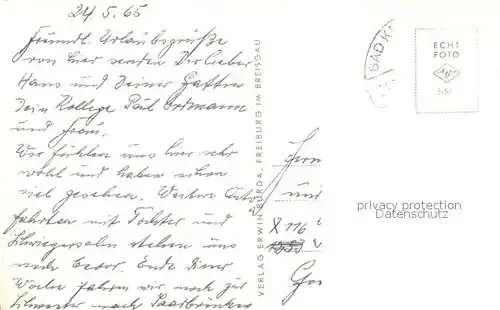 24.5.65
Freundl. Urlaubsgrüße
von hier senden Dir lieber
Hans und Deiner Gattin
Dein Kollege Paul Ortmann
und Frau.
Wir fühlen uns hier sehr
wohl und haben schon
viel gesehen. Weitere Auto
fahrten mit Tochter und
Schwiegersohn stehen uns
noch bevor. Ende dieser
Woche fahren wir noch zur
Schwester nach Saarbrücken
VERLAG ERWIN BURDA, FREIBURG IM BREISGAU
BAD K
ECHT
FOTO
Agfa
Herrn
X 116
privater Bereich
Datenschutz